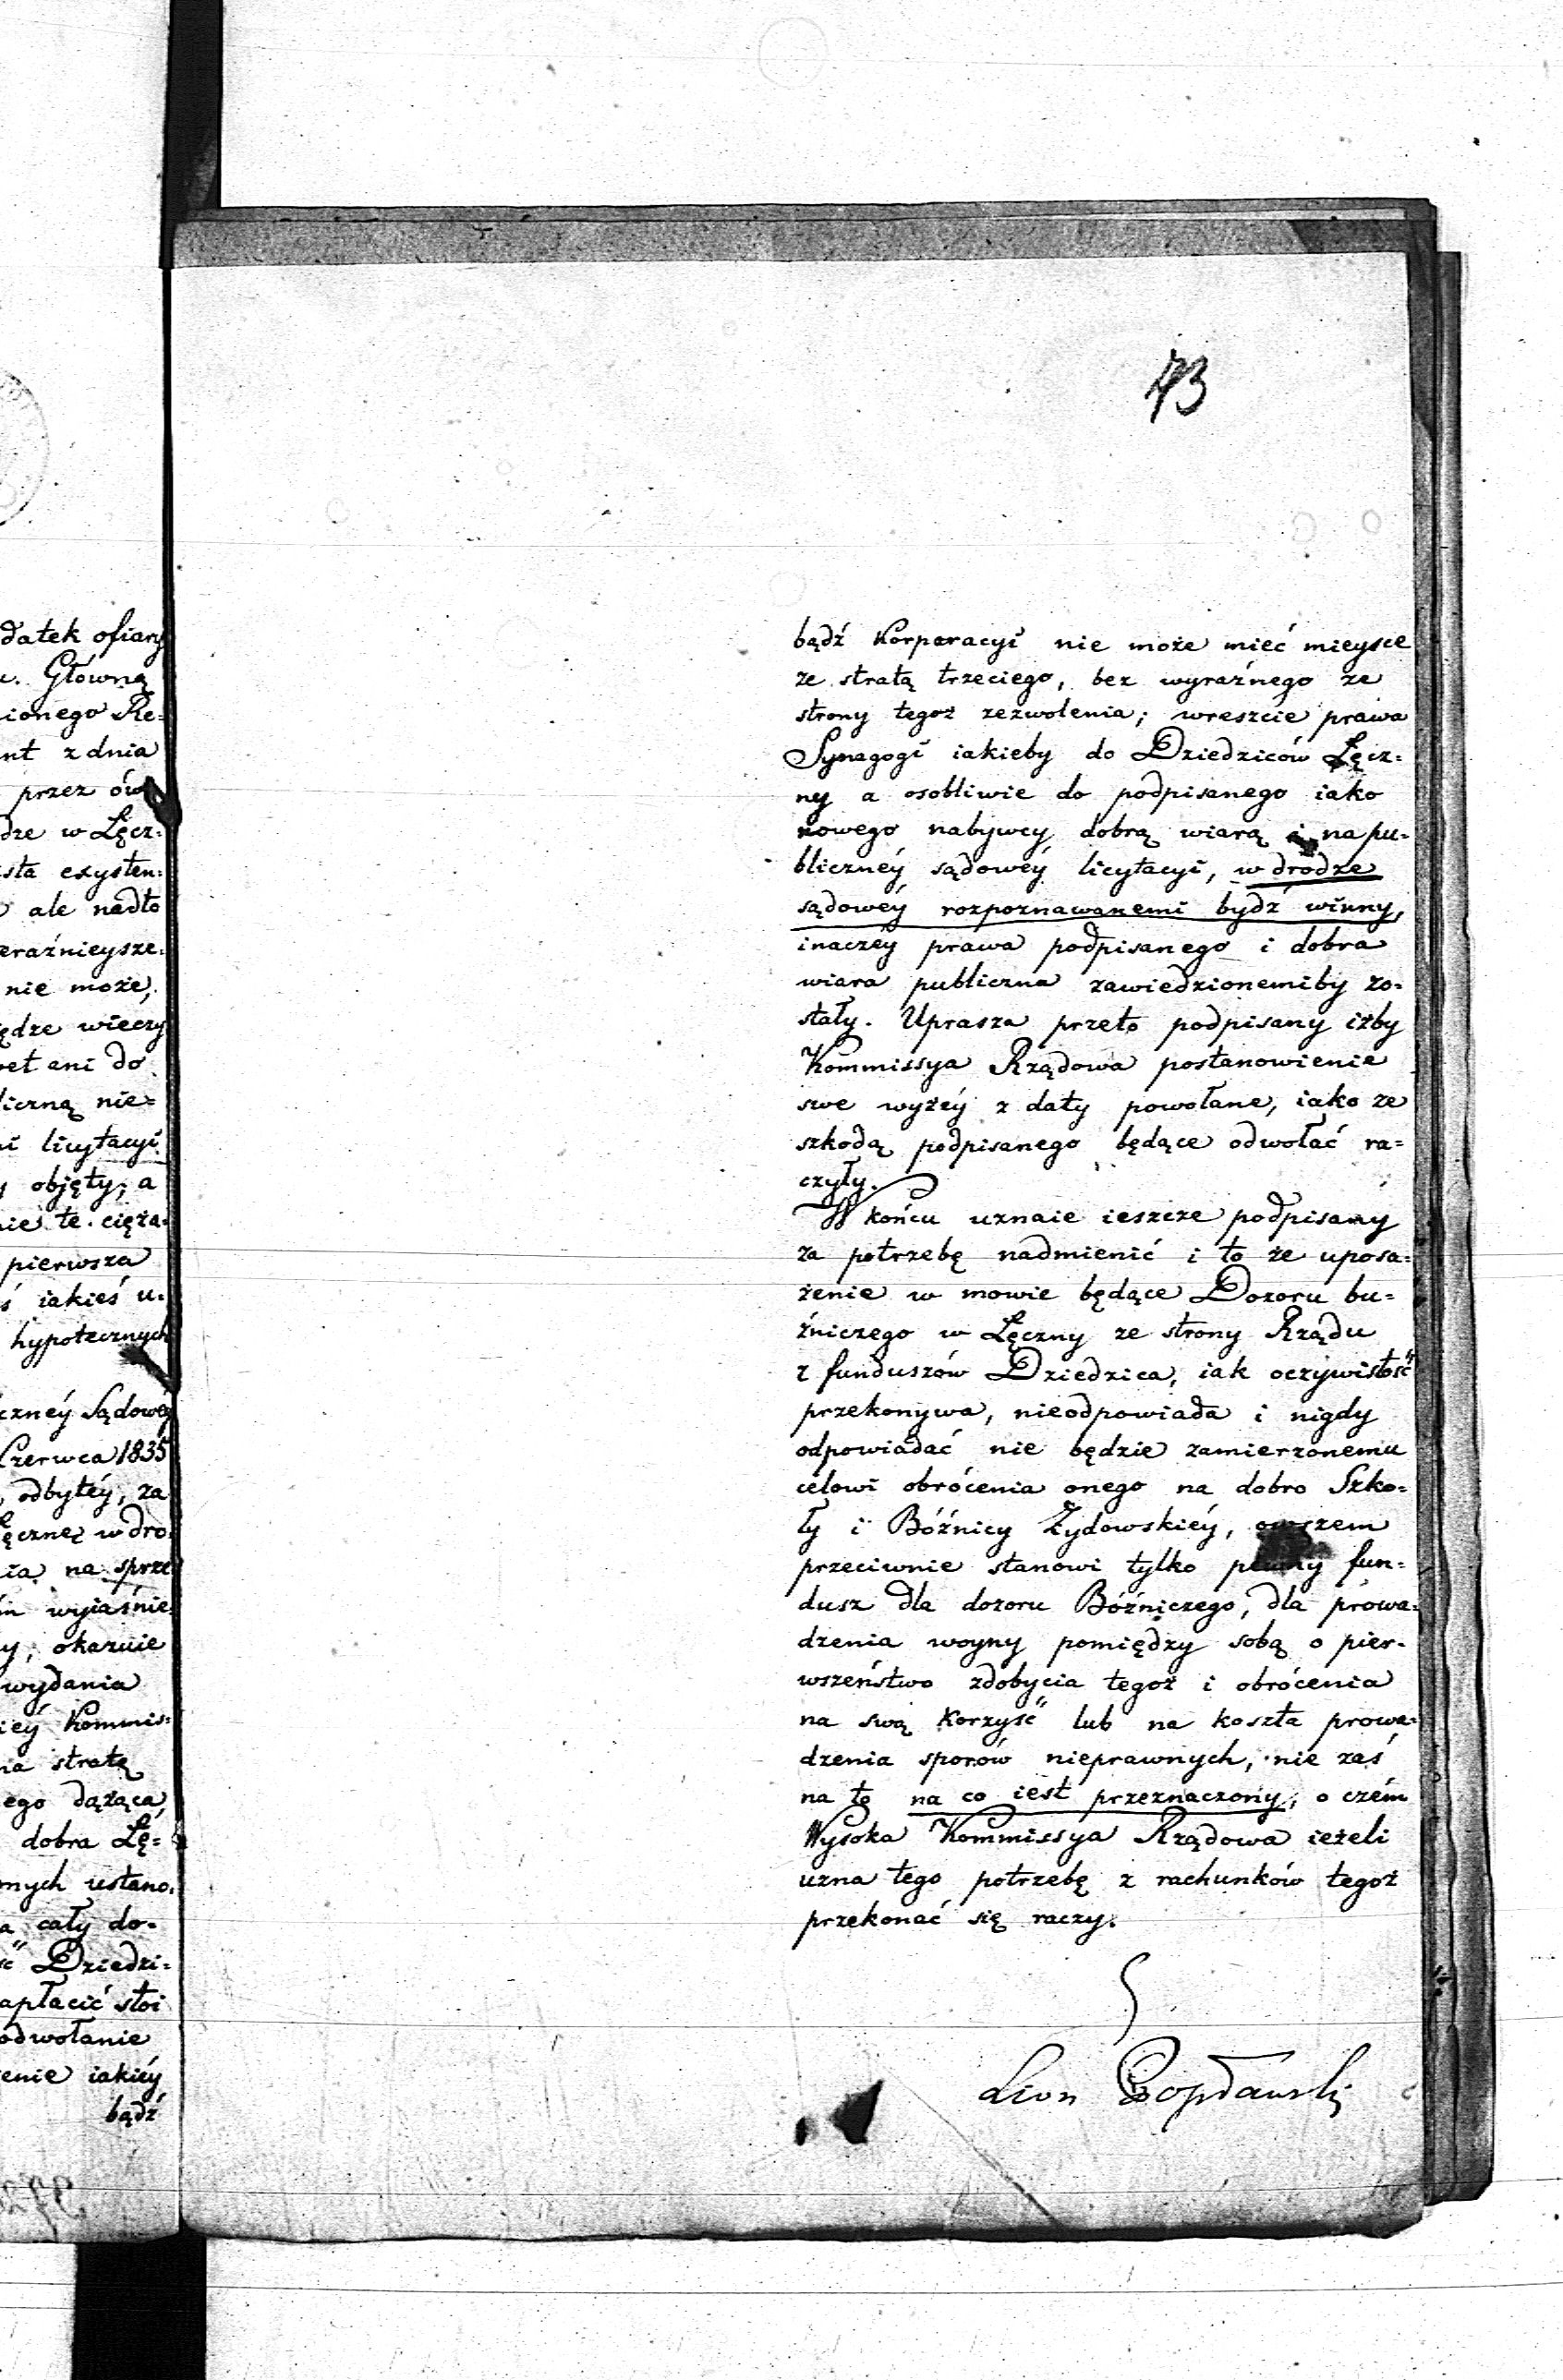 datek ofiary
Główną
ionego Re=
nt z dnia
przez ów
dze w Łęcz=
sta exysten=
ale nadto
eraźnieysze=
nie może,
ędze wieczy
wet ani do
liczną nie=
ni licytacyi
objęty; a
nie te cięża=
pierwsza
ś iakieś u=
hypotecznych
czney Sądowey
Czerwca 1835
, odbytéy, za
ęcznę w dro
ia na sprze
m wyiaśnie
y, okazuie
wydania
iéy Kommis=
ia stratę
ego dążąca
dobra Łę=
mnych ustano=
a cały do=
ść Dziedzi=
apłacić stoi
odwołanie
enie iakiéy
bądź
73
bądź Korporacyi nie może mieć mieysce
ze stratą trzeciego, bez wyraźnego ze
strony tegoż zezwolenia; wreszcie prawa
Synagogi iakieby do Dziedziców Łęcz=
ny a osobliwie do podpisanego iako
nowego nabywcy dobrą wiarą i na pu=
blicznéy sądowéy licytacyi, w drodze
sądowéy rozpoznawanemi bydź winny,
inaczéy prawa podpisanego i dobra
wiara publiczna zawiedzionemiby zo=
stały. Uprasza przeto podpisany iżby
Kommissya Rządowa postanowienie
swe wyżéy z daty powołane, iako ze
szkodą podpisanego będące odwołać ra=
czyły.
W końcu uznaie ieszcze podpisany
za potrzebę nadmienić i to że uposa=
żenie w mowie będące Dozoru bu=
źniczego w Łęczny ze strony Rządu
z funduszów Dziedzica, iak oczywistość
przekonywa, nieodpowiada i nigdy
odpowiadać nie będzie zamierzonemu
celowi obrócenia onego na dobro Szko=
ły i Bóźnicy Żydowskiéy, owszem
przeciwnie stanowi tylko pewny fun=
dusz dla dozoru Bóźniczego, dla prowa=
dzenia woyny pomiędzy sobą o pier=
wszeństwo zdobycia tegoż i obrócenia
na swą korzyść lub na koszta prowa=
dzenia sporów nieprawnych, nie zaś
na to na co iest przeznaczony, o czém
Wysoka Kommissya Rządowa ieżeli
uzna tego potrzebę z rachunków tegoż
przekonać się raczy.
Leon Bogdawski